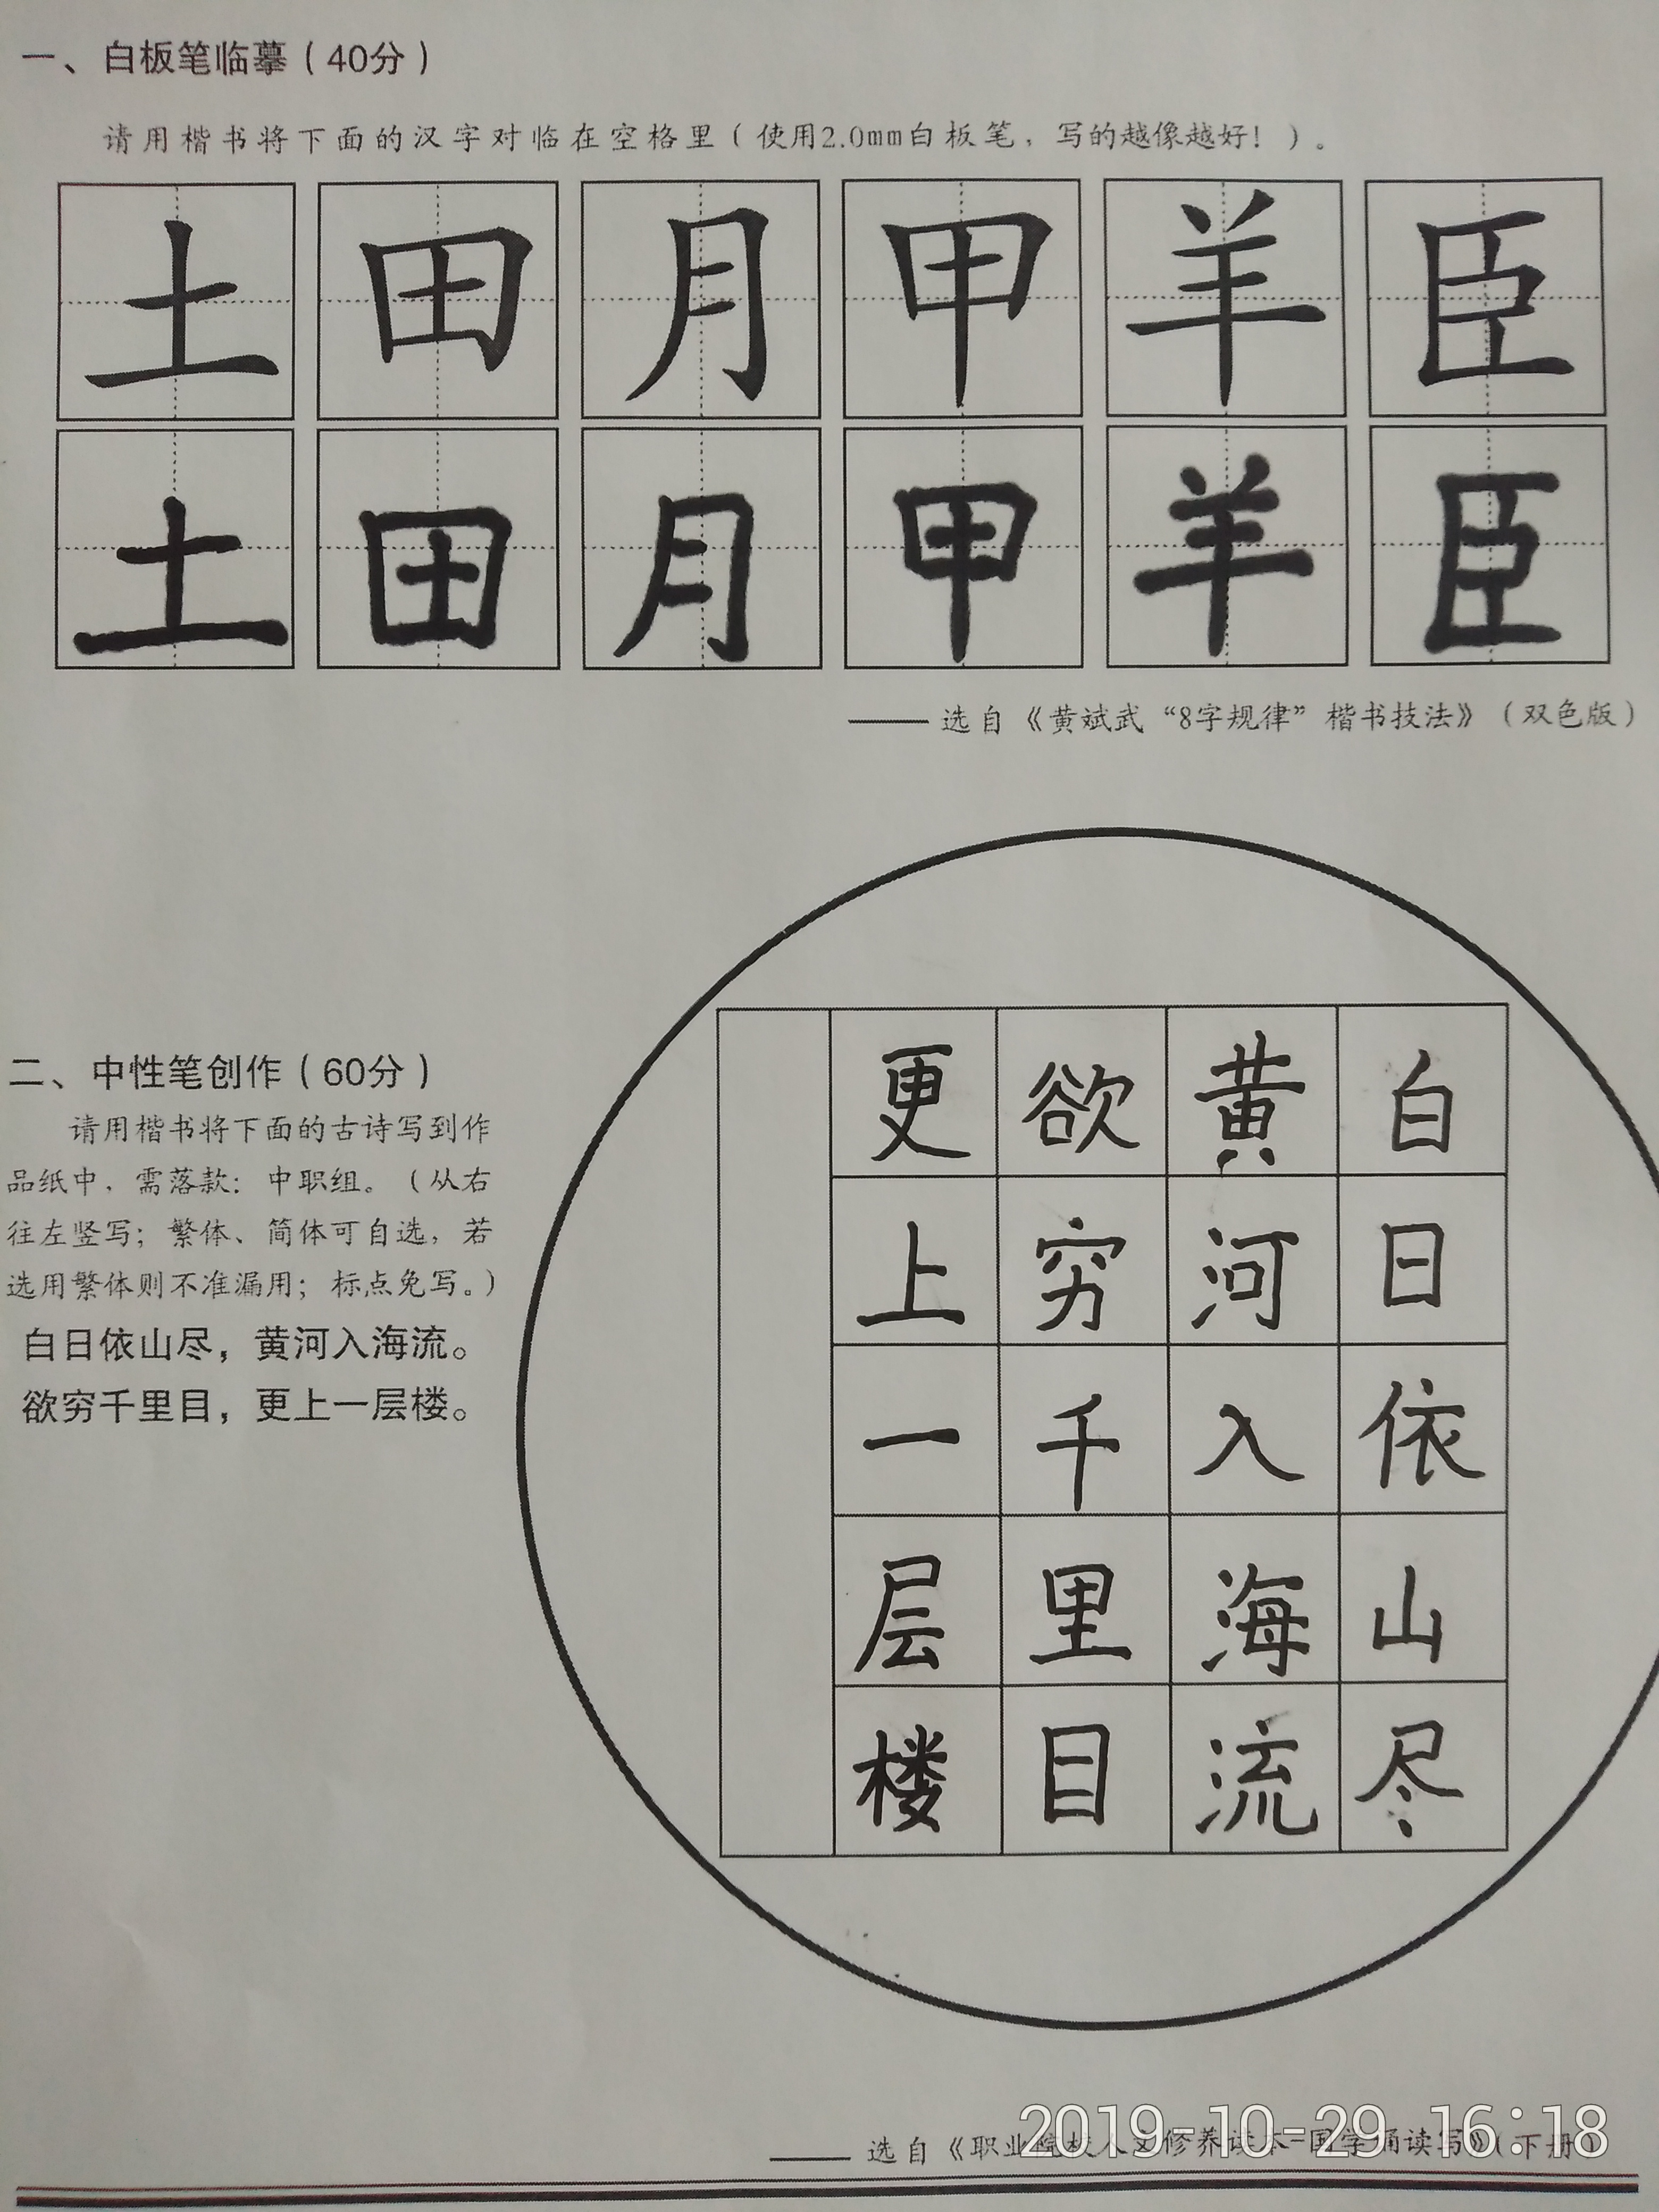 一、白板笔临摹（40分）
请用楷书将下面的汉字对临在空格里（使用2.0mm白板笔，写的越像越好！）。
土 田 月 甲 羊 臣
土 田 月 甲 羊 臣
——选自《黄斌武“8字规律”楷书技法》（双色版）
二、中性笔创作（60分）
请用楷书将下面的古诗写到作
品纸中，需落款：中职组。（从右
往左竖写；繁体、简体可自选，若
选用繁体则不准漏用；标点免写。）
白日依山尽，黄河入海流。
欲穷千里目，更上一层楼。
白日依山尽
黄河入海流
欲穷千里目
更上一层楼
——选自《职业院校人文修养读本-国学诵读写》（下册）
2019-10-29 16:18